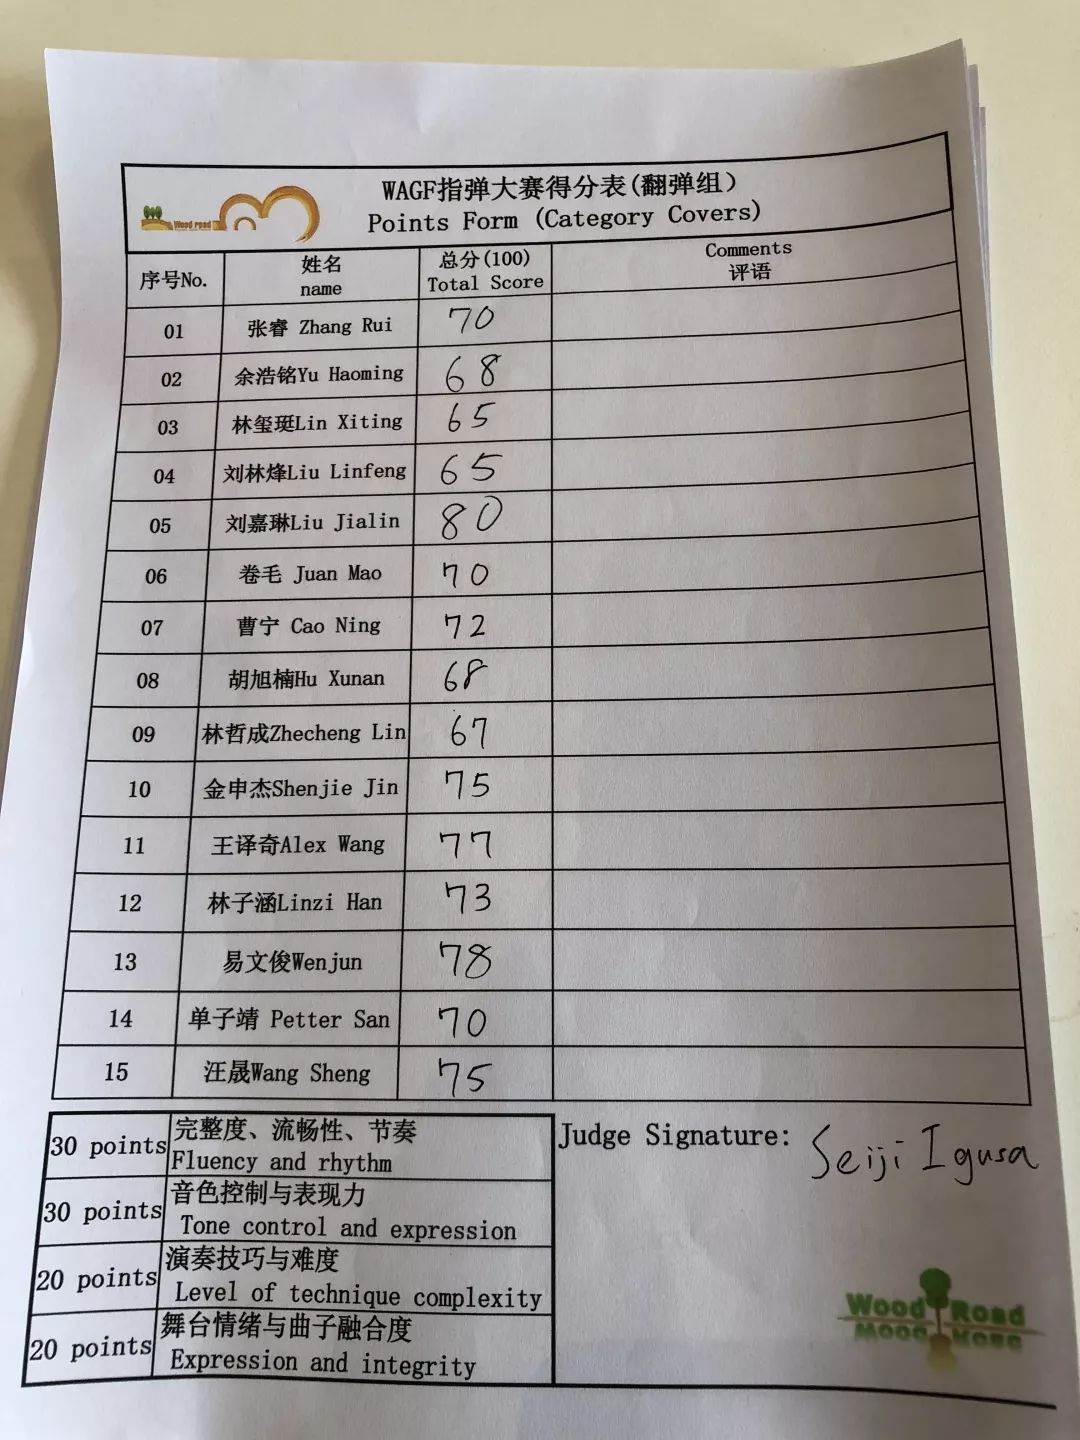 WAGF指弹大赛得分表(翻弹组)
Points Form (Category Covers)
Wood road
序号No. 姓名 name 总分(100) Total Score Comments 评语
01 张睿 Zhang Rui 70
02 余浩铭Yu Haoming 68
03 林玺珽Lin Xiting 65
04 刘林烽Liu Linfeng 65
05 刘嘉琳Liu Jialin 80
06 卷毛 Juan Mao 70
07 曹宁 Cao Ning 72
08 胡旭楠Hu Xunan 68
09 林哲成Zhecheng Lin 67
10 金申杰Shenjie Jin 75
11 王译奇Alex Wang 77
12 林子涵Linzi Han 73
13 易文俊Wenjun 78
14 单子靖 Petter San 70
15 汪晟Wang Sheng 75
30 points 完整度、流畅性、节奏
Fluency and rhythm
30 points 音色控制与表现力
Tone control and expression
20 points 演奏技巧与难度
Level of technique complexity
20 points 舞台情绪与曲子融合度
Expression and integrity
Judge Signature: Seiji Igusa
Wood Road